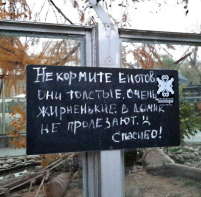 Не кормите енотов
они толстые, очень
жирненькие, в домик
не пролезают. :(
Спасибо!